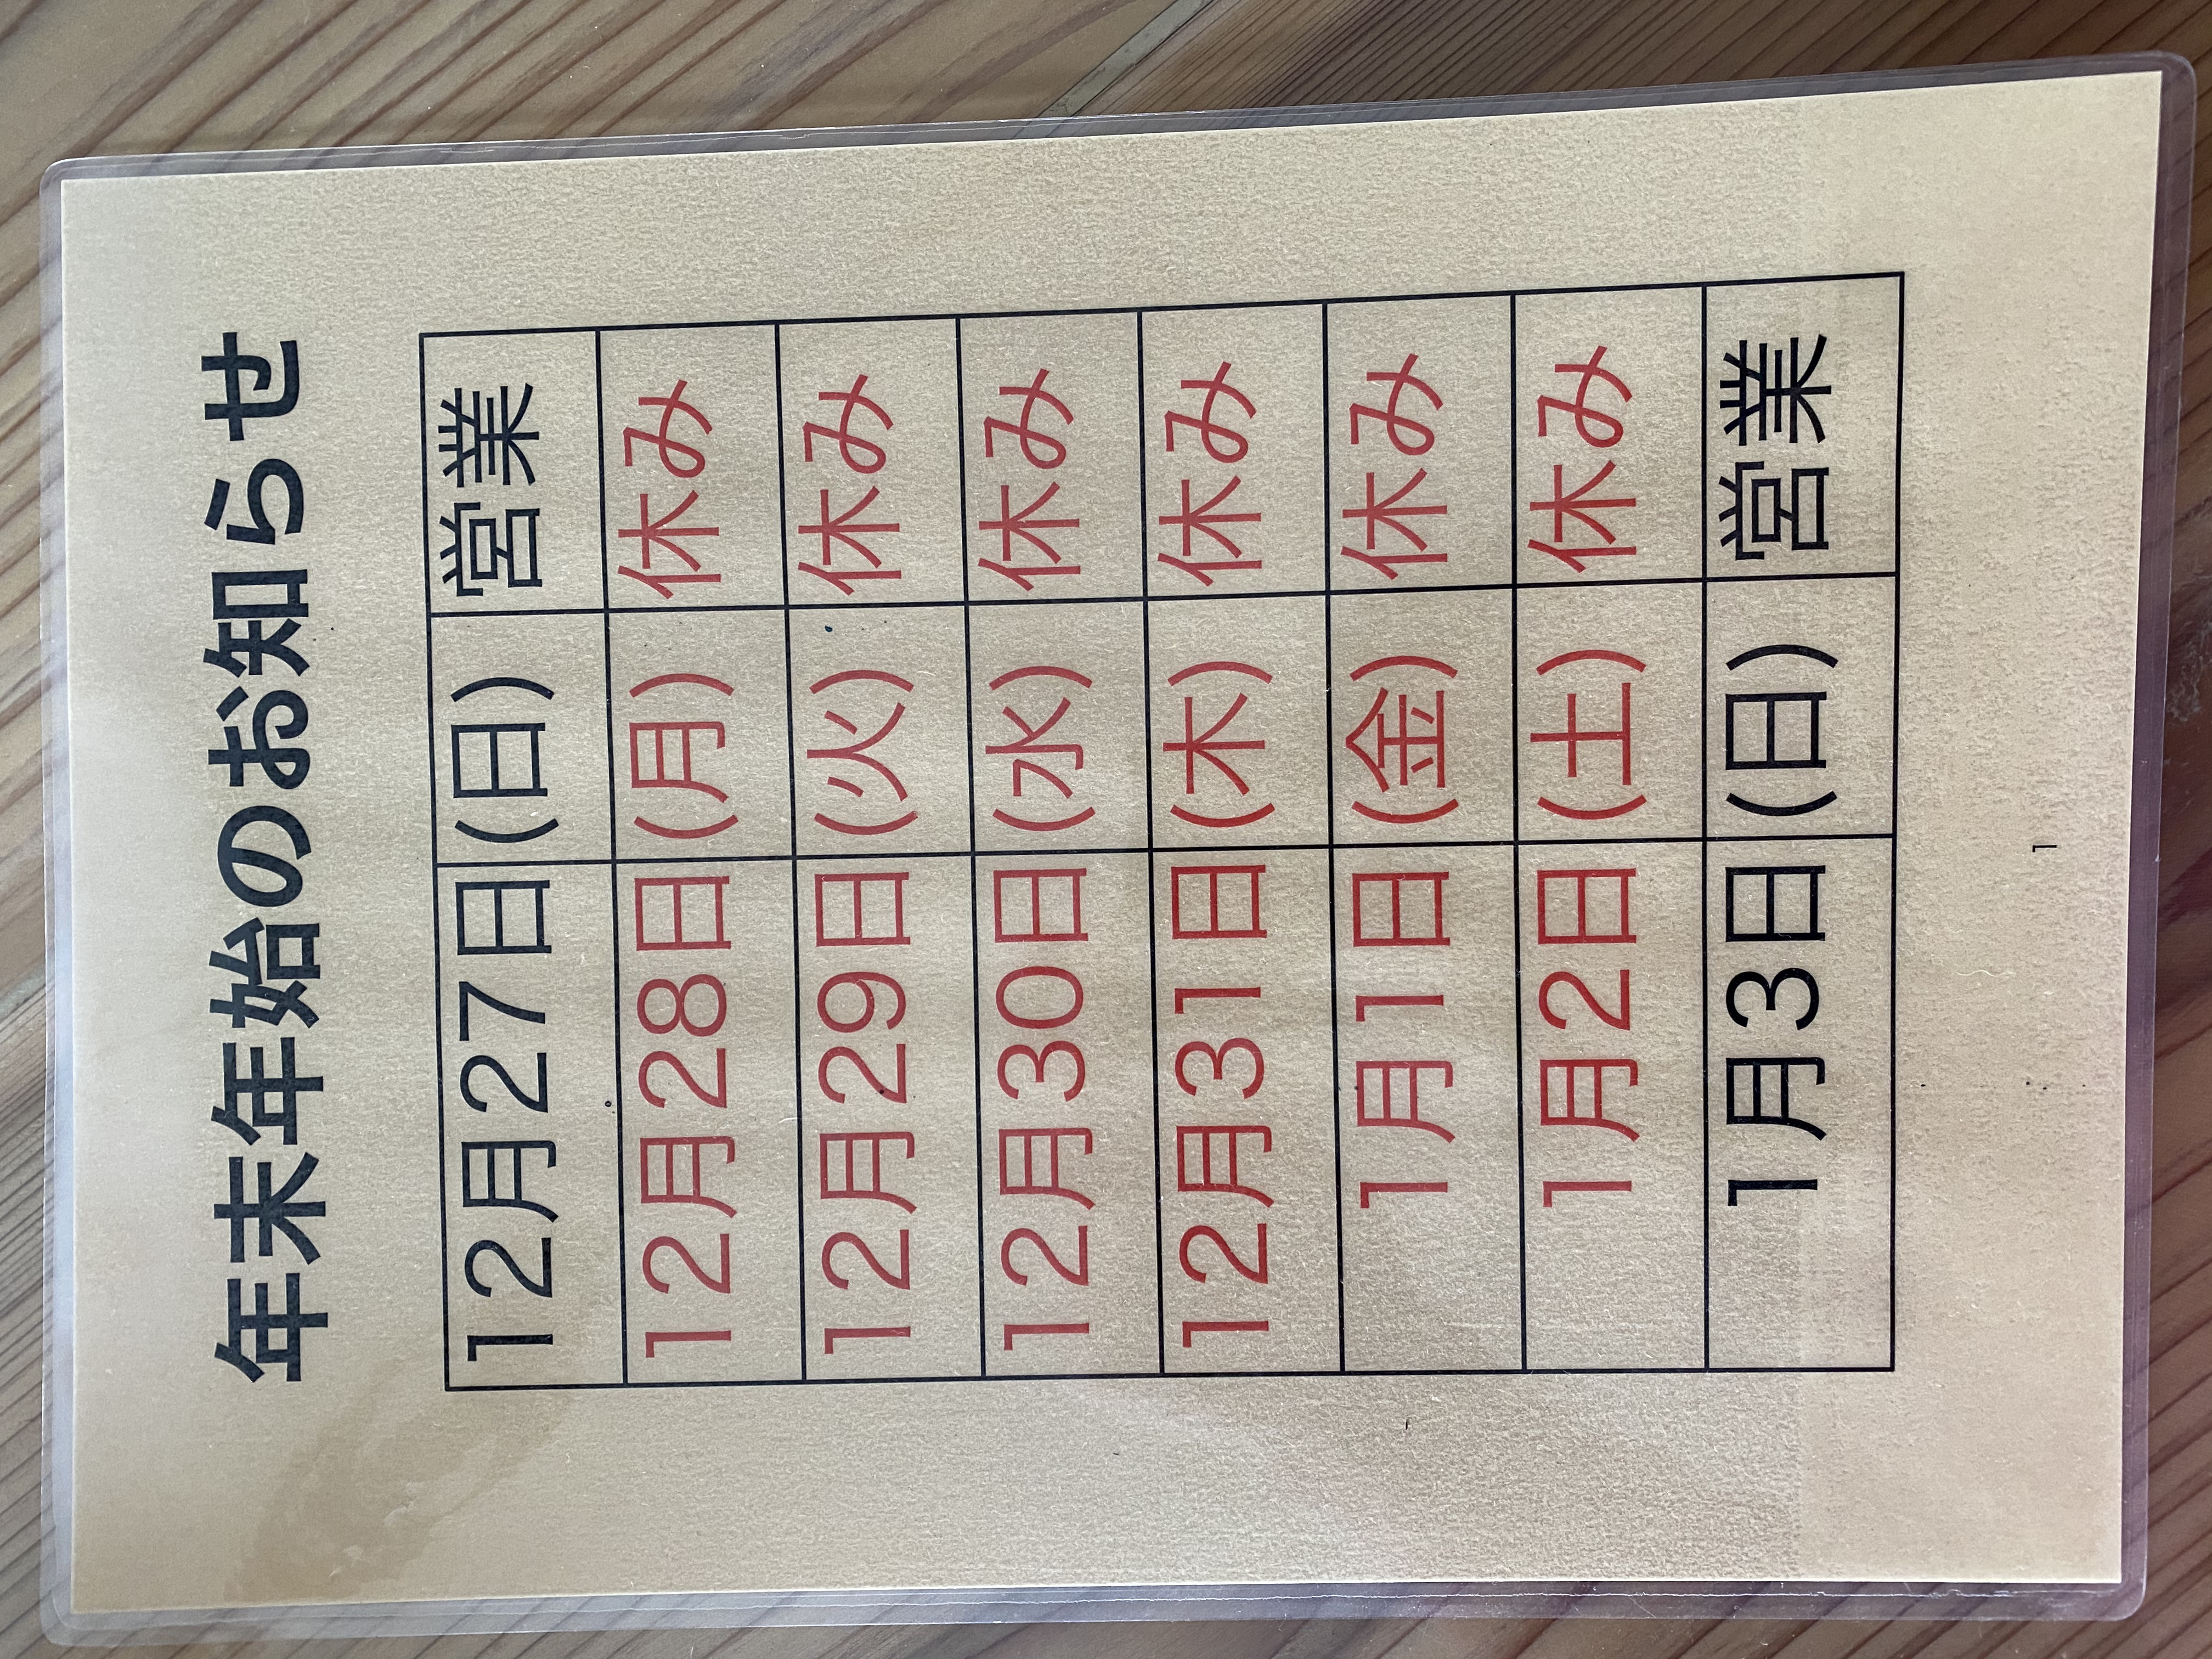 年末年始のお知らせ
12月27日 (日) 営業
12月28日 (月) 休み
12月29日 (火) 休み
12月30日 (水) 休み
12月31日 (木) 休み
1月1日 (金) 休み
1月2日 (土) 休み
1月3日 (日) 営業
1